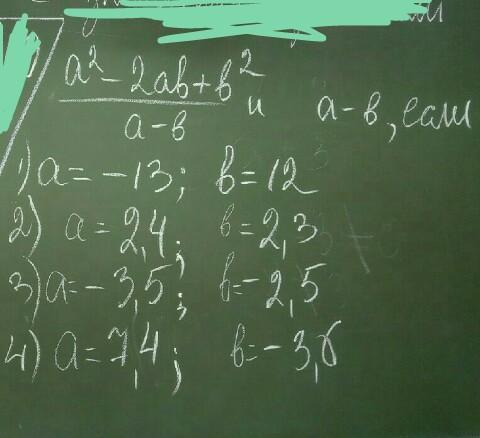 a² - 2ab + b²
a - b
и a - b, если
1) a = -13; b = 12
2) a = 2,4; b = 2,3
3) a = -3,5; b = -2,5
4) a = 7,4; b = -3,8